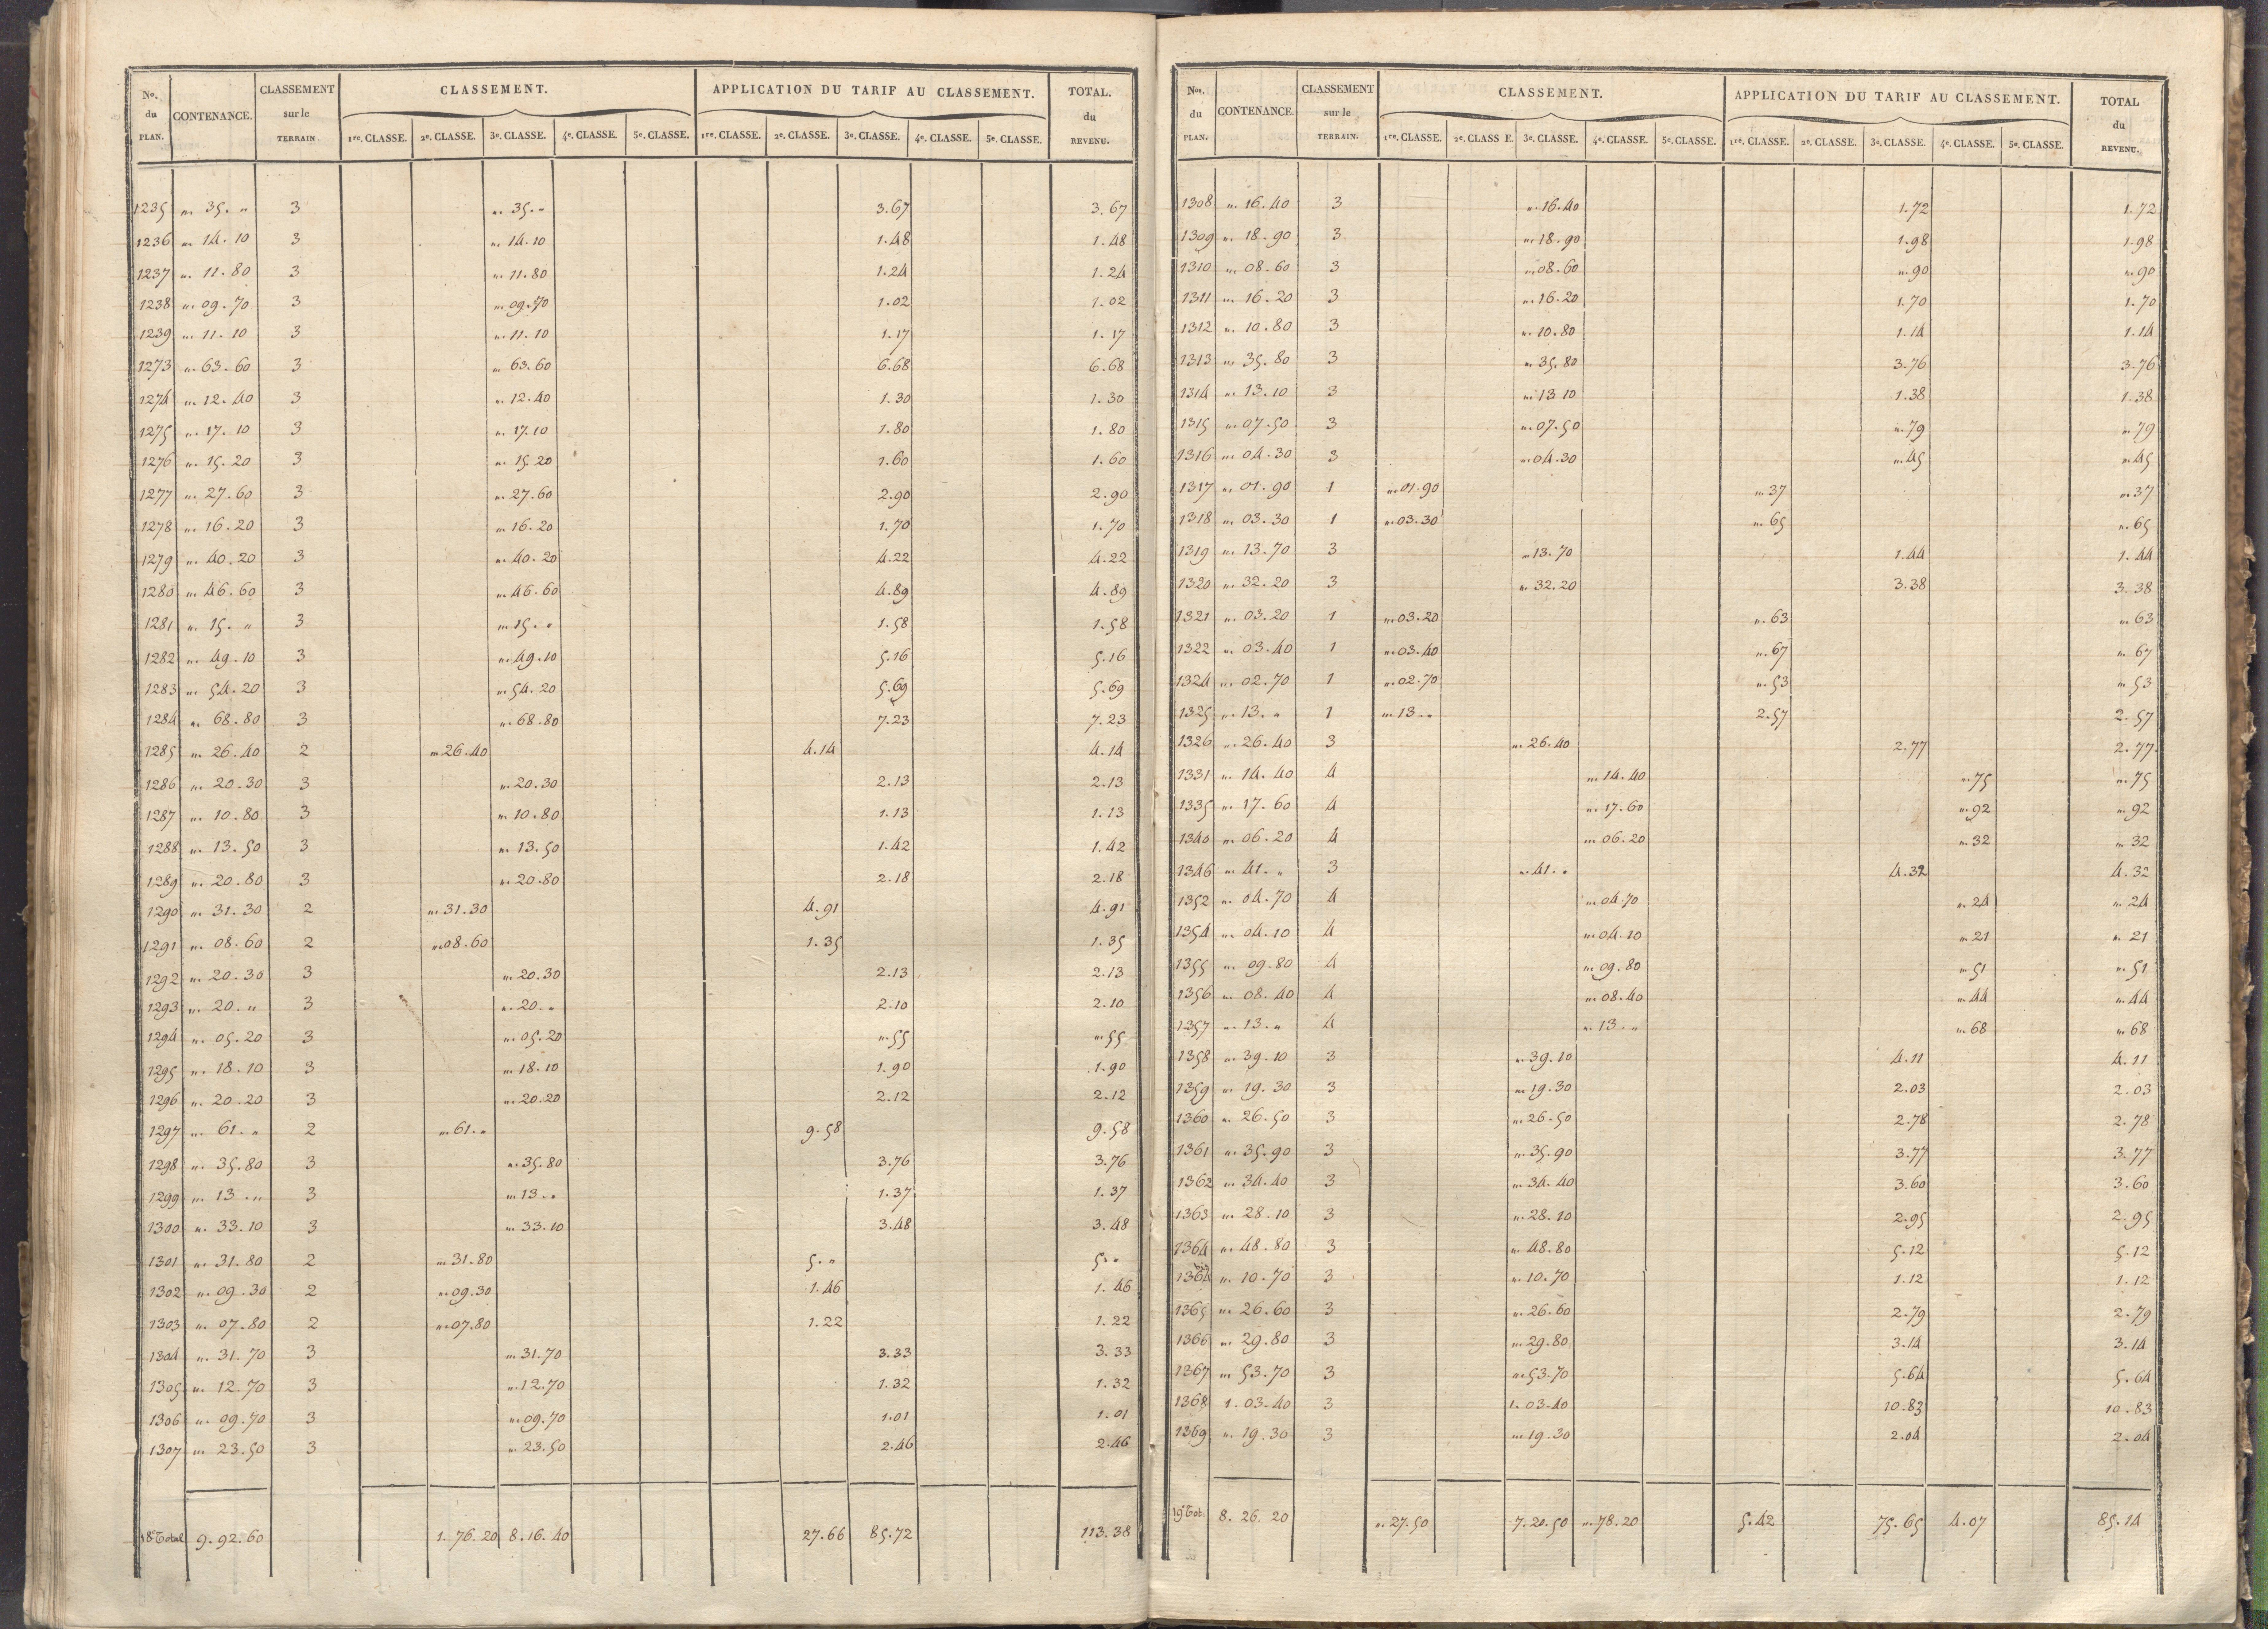 Nos. du PLAN. CONTENANCE. CLASSEMENT sur le TERRAIN. CLASSEMENT. APPLICATION DU TARIF AU CLASSEMENT. TOTAL. du REVENU.
1re. CLASSE. 2e. CLASSE. 3e. CLASSE. 4e. CLASSE. 5e. CLASSE. 1re. CLASSE. 2e. CLASSE. 3e. CLASSE. 4e. CLASSE. 5e. CLASSE.
1235 " 35. " 3 " 35. " 3.67 3.67
1236 " 14.10 3 " 14.10 1.48 1.48
1237 " 11.80 3 " 11.80 1.24 1.24
1238 " 09.70 3 " 09.70 1.02 1.02
1239 " 11.10 3 " 11.10 1.17 1.17
1273 " 63.60 3 " 63.60 6.68 6.68
1274 " 12.40 3 " 12.40 1.30 1.30
1275 " 17.10 3 " 17.10 1.80 1.80
1276 " 15.20 3 " 15.20 1.60 1.60
1277 " 27.60 3 " 27.60 2.90 2.90
1278 " 16.20 3 " 16.20 1.70 1.70
1279 " 40.20 3 " 40.20 4.22 4.22
1280 " 46.60 3 " 46.60 4.89 4.89
1281 " 15. " 3 " 15. " 1.58 1.58
1282 " 49.10 3 " 49.10 5.16 5.16
1283 " 54.20 3 " 54.20 5.69 5.69
1284 " 68.80 3 " 68.80 7.23 7.23
1285 " 26.40 2 " 26.40 4.14 4.14
1286 " 20.30 3 " 20.30 2.13 2.13
1287 " 10.80 3 " 10.80 1.13 1.13
1288 " 13.50 3 " 13.50 1.42 1.42
1289 " 20.80 3 " 20.80 2.18 2.18
1290 " 31.30 2 " 31.30 4.91 4.91
1291 " 08.60 2 " 08.60 1.35 1.35
1292 " 20.30 3 " 20.30 2.13 2.13
1293 " 20. " 3 " 20. " 2.10 2.10
1294 " 05.20 3 " 05.20 " 55 " 55
1295 " 18.10 3 " 18.10 1.90 1.90
1296 " 20.20 3 " 20.20 2.12 2.12
1297 " 61. " 2 " 61. " 9.58 9.58
1298 " 35.80 3 " 35.80 3.76 3.76
1299 " 13. " 3 " 13. " 1.37 1.37
1300 " 33.10 3 " 33.10 3.48 3.48
1301 " 31.80 2 " 31.80 5. " 5. "
1302 " 09.30 2 " 09.30 1.46 1.46
1303 " 07.80 2 " 07.80 1.22 1.22
1304 " 31.70 3 " 31.70 3.33 3.33
1305 " 12.70 3 " 12.70 1.32 1.32
1306 " 09.70 3 " 09.70 1.01 1.01
1307 " 23.50 3 " 23.50 2.46 2.46
18e Total 9.92.60 1.76.20 8.16.40 27.66 85.72 113.38
Nos. du PLAN. CONTENANCE. CLASSEMENT sur le TERRAIN. CLASSEMENT. APPLICATION DU TARIF AU CLASSEMENT. TOTAL du REVENU.
1re. CLASSE. 2e. CLASS E. 3e. CLASSE. 4e. CLASSE. 5e. CLASSE. 1re. CLASSE. 2e. CLASSE. 3e. CLASSE. 4e. CLASSE. 5e. CLASSE.
1308 " 16.40 3 " 16.40 1.72 1.72
1309 " 18.90 3 " 18.90 1.98 1.98
1310 " 08.60 3 " 08.60 " 90 " 90
1311 " 16.20 3 " 16.20 1.70 1.70
1312 " 10.80 3 " 10.80 1.14 1.14
1313 " 35.80 3 " 35.80 3.76 3.76
1314 " 13.10 3 " 13 10 1.38 1.38
1315 " 07.50 3 " 07.50 " 79 " 79
1316 " 04.30 3 " 04.30 " 45 " 45
1317 " 01.90 1 " 01.90 " 37 " 37
1318 " 03.30 1 " 03.30 " 65 " 65
1319 " 13.70 3 " 13.70 1.44 1.44
1320 " 32.20 3 " 32.20 3.38 3.38
1321 " 03.20 1 " 03.20 " 63 " 63
1322 " 03.40 1 " 03.40 " 67 " 67
1324 " 02.70 1 " 02.70 " 53 " 53
1325 " 13. " 1 " 13. " 2.57 2.57
1326 " 26.40 3 " 26.40 2.77 2.77
1331 " 14.40 4 " 14.40 " 75 " 75
1335 " 17.60 4 " 17.60 " 92 " 92
1340 " 06.20 4 " 06.20 " 32 " 32
1346 " 41. " 3 " 41. " 4.32 4.32
1352 " 04.70 4 " 04.70 " 24 " 24
1354 " 04.10 4 " 04.10 " 21 " 21
1355 " 09.80 4 " 09.80 " 51 " 51
1356 " 08.40 4 " 08.40 " 44 " 44
1357 " 13. " 4 " 13. " " 68 " 68
1358 " 39.10 3 " 39.10 4.11 4.11
1359 " 19.30 3 " 19.30 2.03 2.03
1360 " 26.50 3 " 26.50 2.78 2.78
1361 " 35.90 3 " 35.90 3.77 3.77
1362 " 34.40 3 " 34.40 3.60 3.60
1363 " 28.10 3 " 28.10 2.95 2.95
1364 " 48.80 3 " 48.80 5.12 5.12
1364 bis " 10.70 3 " 10.70 1.12 1.12
1365 " 26.60 3 " 26.60 2.79 2.79
1366 " 29.80 3 " 29.80 3.14 3.14
1367 " 53.70 3 " 53.70 5.64 5.64
1368 1.03.40 3 1.03.40 10.83 10.83
1369 " 19.30 3 " 19.30 2.04 2.04
19e Tot. 8.26.20 " 27.50 7.20.50 " 78.20 5.42 75.65 4.07 85.14